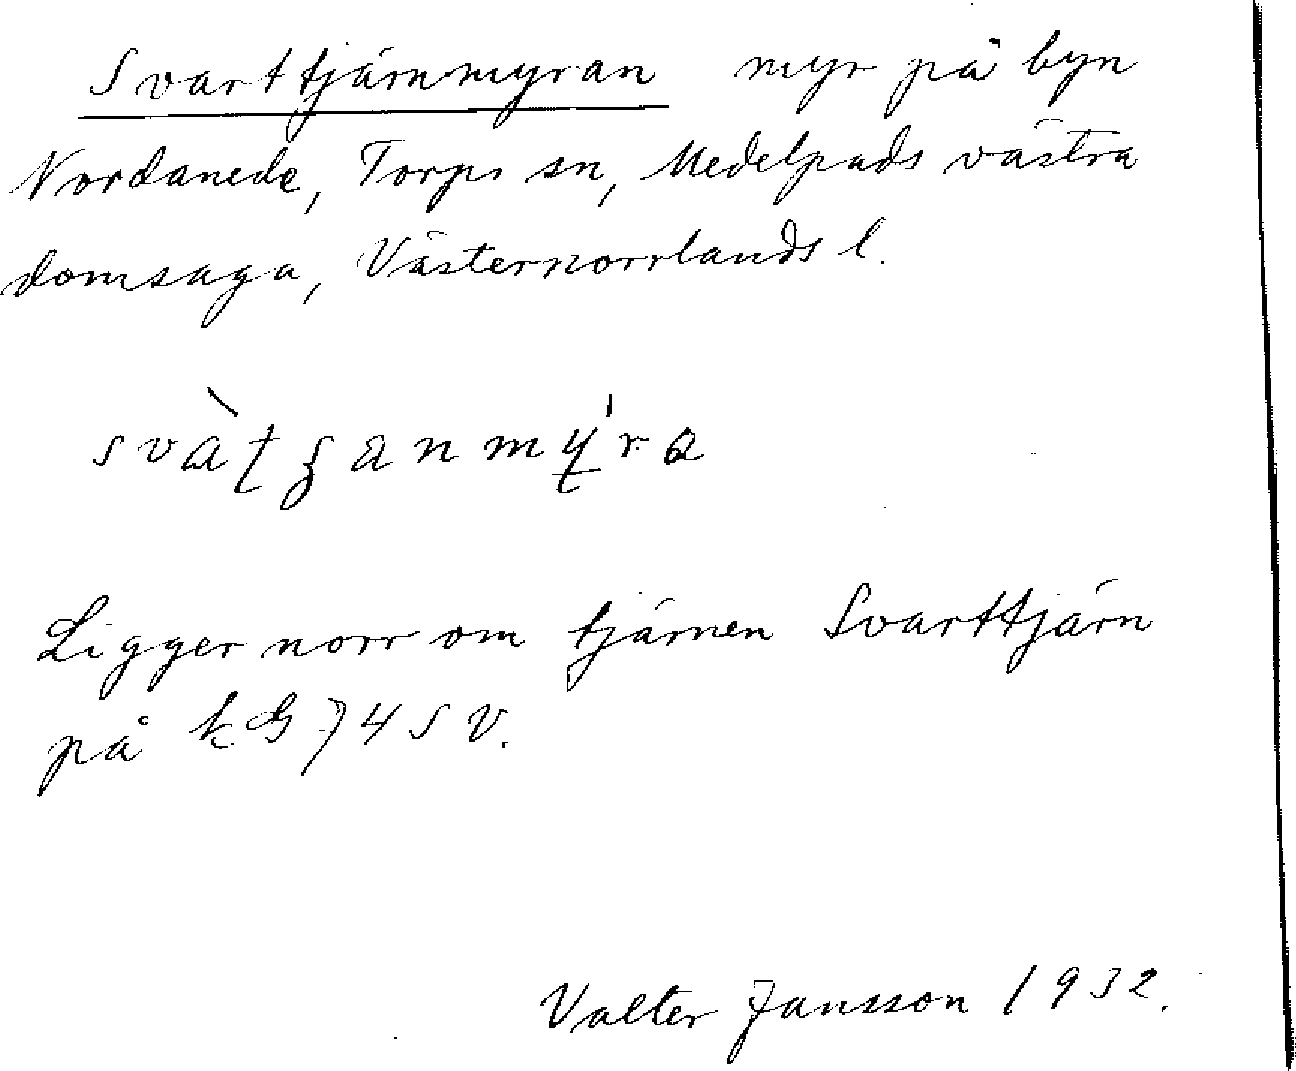 Svarttjärnmyran myr på byn
Nordanede, Torps sn, Medelpads västra
domsaga, Västernorrlands l.
Ligger norr om tjärnen Svarttjärn
på k G 74 S V.
Valter Jansson 1932.